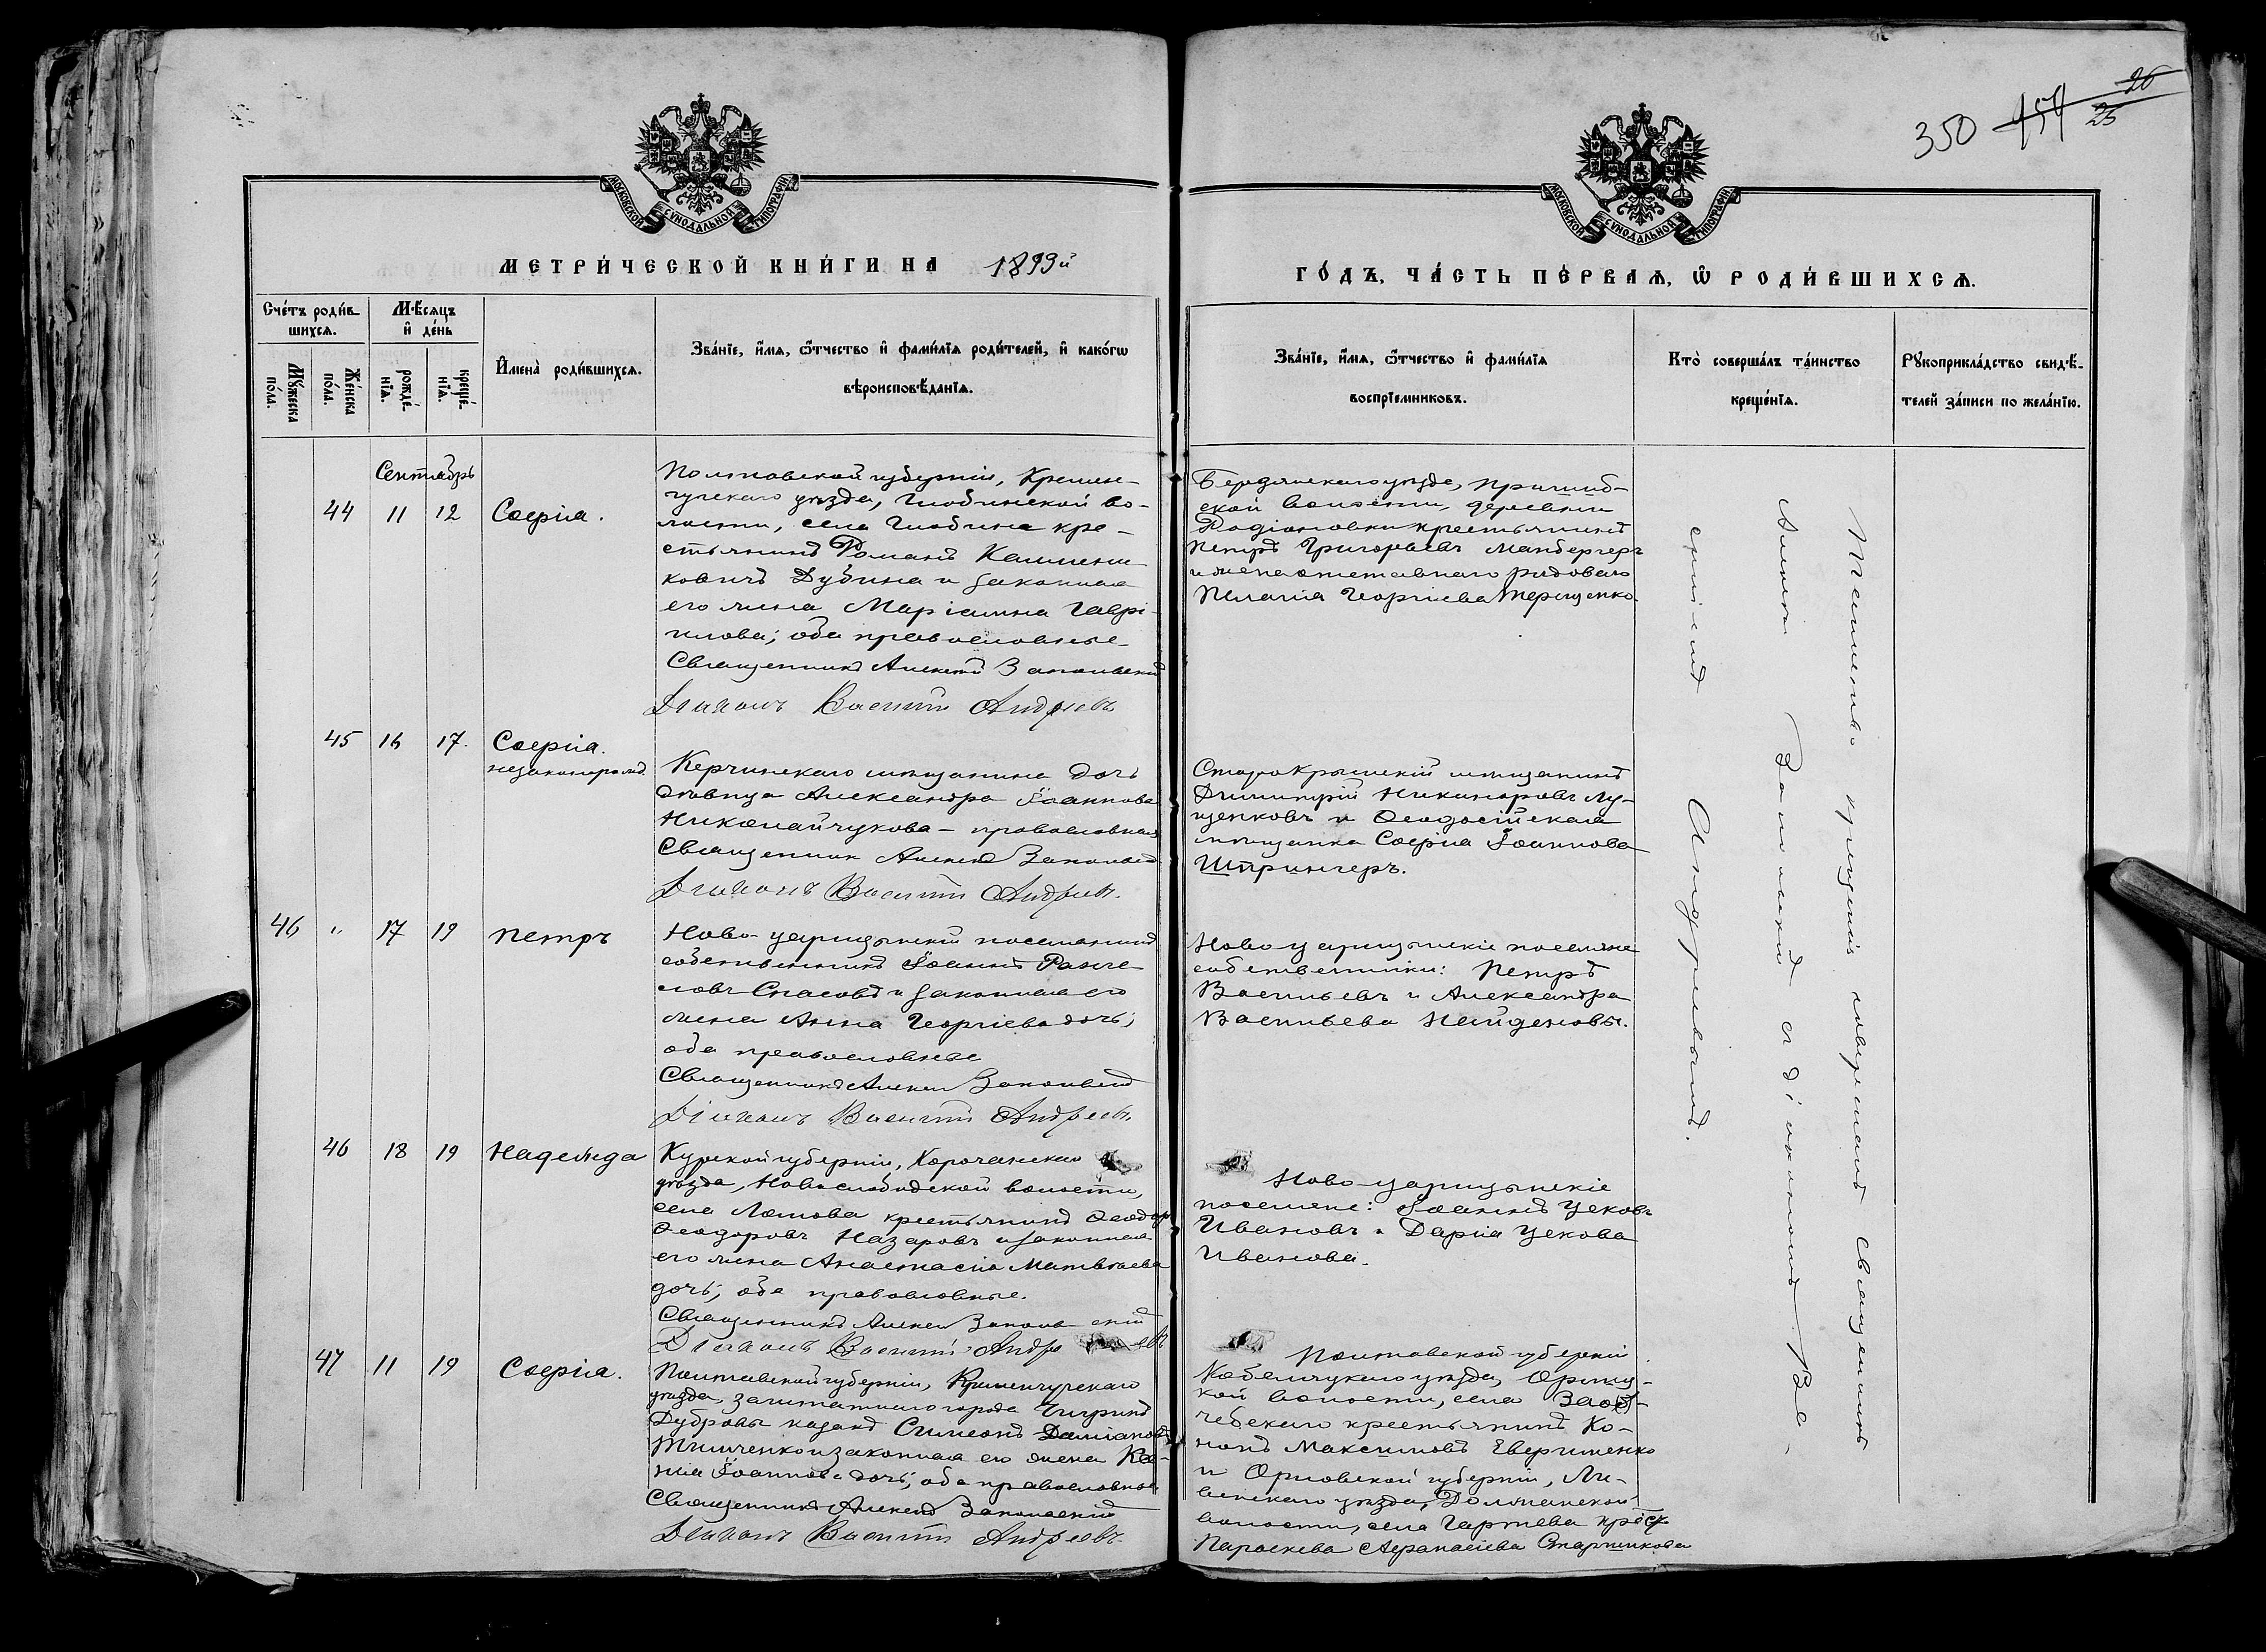 350 454 26
25
МОСКОВСКОЙ СУНОДАЛЬНОЙ ТИПОГРАФІИ
МОСКОВСКОЙ СУНОДАЛЬНОЙ ТИПОГРАФІИ
МЕТРИ́ЧЕСКОЙ КНИ́ГИ НА 1899й
ГО́ДЪ, ЧА́СТЬ ПЕ́РВАѦ, Ѽ РОДИ́ВШИХСѦ.
Сче́тъ роди́в-
шихсѧ.
Мꙋ́жеска
по́ла.
Же́нска
по́ла.
Мѣ́сѧцъ
и҆ де́нь
рожде́-
нїѧ.
креще́-
нїѧ.
И҆мена̀ роди́вшихсѧ.
Зва́нїе, и҆́мѧ, ѻ҆́тчество и҆ фами́лїѧ роди́телей, и҆ како́гѡ
вѣроисповѣ́данїѧ.
Зва́нїе, и҆́мѧ, ѻ҆́тчество и҆ фами́лїѧ
воспрїемниковъ.
Кто̀ соверша́лъ та́инство
креще́нїѧ.
Рꙋкоприкла́дство свидѣ́-
телей за́писи по жела́нїю.
Сентябрь
44 11 12 Софія.
Полтавской губерніи, Кремен-
чугскаго уѣзда, Глобинской во-
лости, села Глобина кре-
стьянинъ Романъ
ковичъ Дубина и законная
его жена Маріамна Гаврі-
илова; оба православные
Священникъ Алексій Запольскій
Діаконъ Василій Андреевъ
Бердянскаго уѣзда, Пришиб-
ской волости, деревни
крестьянинъ
Петръ Григорьевъ Манбергеръ
и жена отставнаго рядоваго
Пелагія Георгіева Терещенко.
45 16 17. Софія.
незаконорожд.
Керчинскаго мѣщанина дочь
дѣвица Александра Іоаннова
Николайчукова – православная
Священник Алексій Запольскій
Діаконъ Василій Андреевъ.
Старокрымскій мѣщанинъ
Димитрій Никаноровъ Лу-
ценковъ и Ѳеодосійская
мѣщанка Софія Іоаннова
Штрингеръ.
46 " 17 19 Петръ
Ново-царицынскій поселянинъ
собственникъ Іоаннъ
Спасовъ и законная его
жена Анна Георгіева дочь;
оба православные
Священникъ Алексій Запольскій
Діаконъ Василій Андреевъ.
Новоцарицынскіе поселяне
собственники: Петръ
Васильевъ и Александра
Васильева Найденовы.
46 18 19 Надежда
Курской губерніи, Корочанскаго
уѣзда, Новослободской волости,
села Ломова крестьянинъ Ѳеодоръ
Ѳеодоровъ Назаровъ и законная
его жена Анастасія Матвѣева
дочь; оба православные.
Священникъ Алексій Запольскій
Діаконъ Василій Андреевъ
Ново-царицынскіе
поселяне: Іоаннъ Цековъ
Ивановъ и Дарія Цекова
Иванова.
47 11 19 Софія.
Полтавской губерніи, Кременчугскаго
уѣзда, заштатнаго города Чигринъ
Дубровы казакъ Симеонъ Даміановъ
Тимченко и законная его жена Ксе-
нія Іоаннова дочь; оба православные
Священникъ Алексій Запольскій
Діаконъ Василій Андреевъ.
Полтавской губерніи
Кобелякскаго уѣзда,
кой волости, села
крестьянинъ Ко-
нонъ Максимовъ Евергименко
и Орловской губерніи, Ли-
венскаго уѣзда, Должанской
волости, села крест.
Параскева Аѳанасіева Старшикова
Таинство крещенія совершалъ Священникъ
Алексій Запольскій съ діакономъ Ва-
силіемъ Андреевымъ.